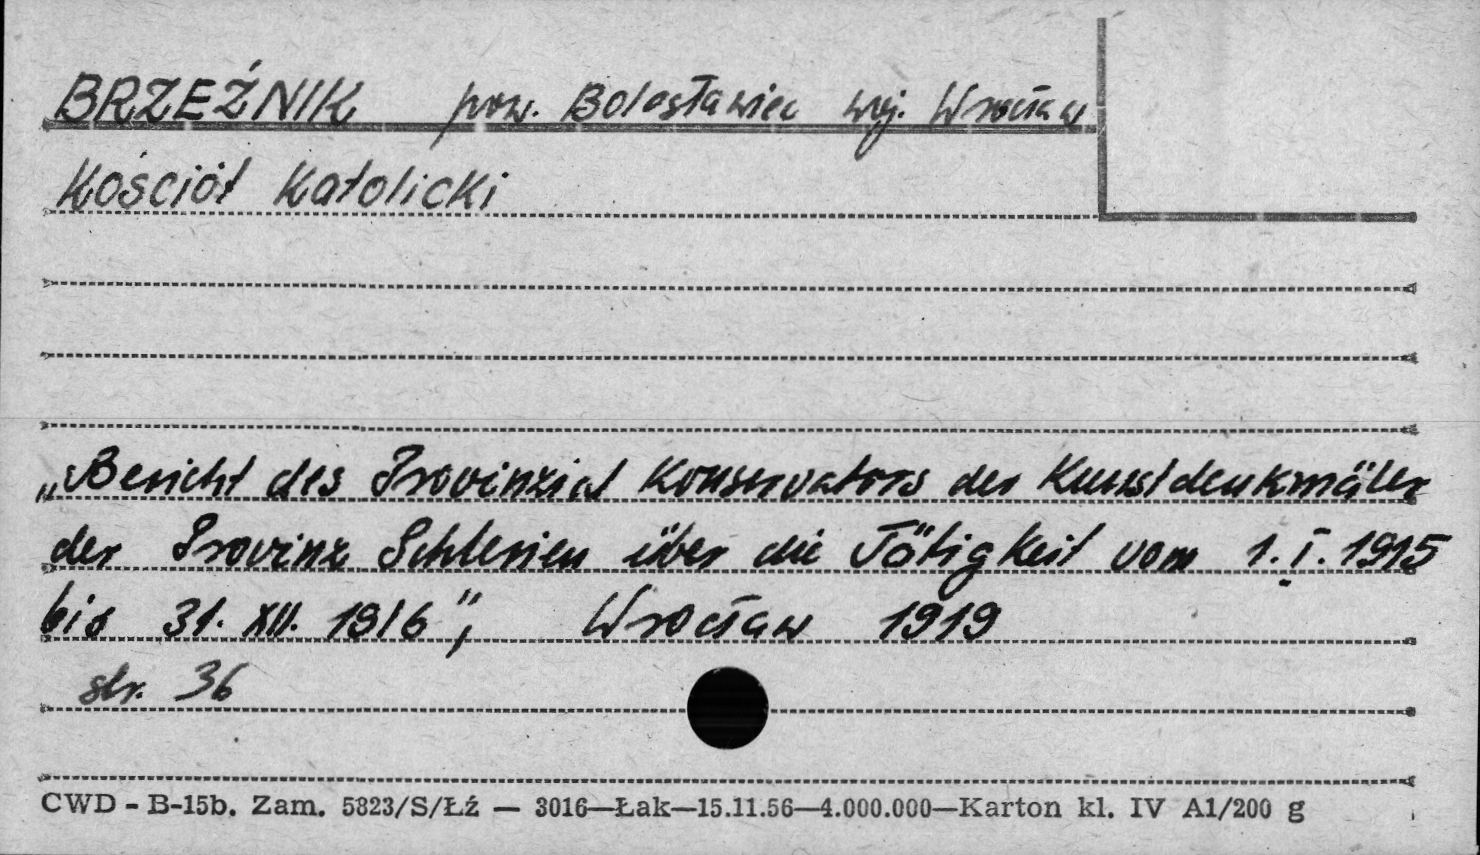 BRZEŹNIK pow. Bolesławiec woj. Wrocław
Kościół Katolicki
„Bericht des Provinzial Konservators der Kunstdenkmäler
der Provinz Schlesien über die Tätigkeit vom 1. I. 1915
bis 31. XII. 1916", Wrocław 1919
str. 36
CWD - B-15b. Zam. 5823/S/Łź — 3016—Łak—15.11.56—4.000.000—Karton kl. IV A1/200 g